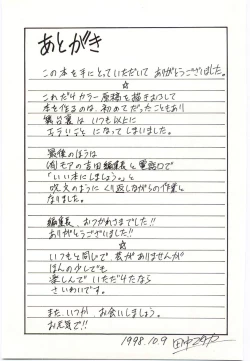 あとがき
この本を手にとっていただいて ありがとうございました。
☆
これだけカラー原稿を描きおこして
本を作るのは、初めてだったこともあり
舞台裏は いつも以上に
おそろしいことになってしまいました。
最後のほうは
(有)モアの吉田編集長と電話口で
「いい本にしましょう。」と
呪文のように くり返しながらの作業と
なりました。
編集長、おつかれさまでした!!
ありがとうございました!!
☆
いつもと同じで 芸がありませんが
ほんの少しでも
楽しんで いただけたなら
さいわいです。
また、いつか、お会いしましょう。
お元気で!!
1998.10.9